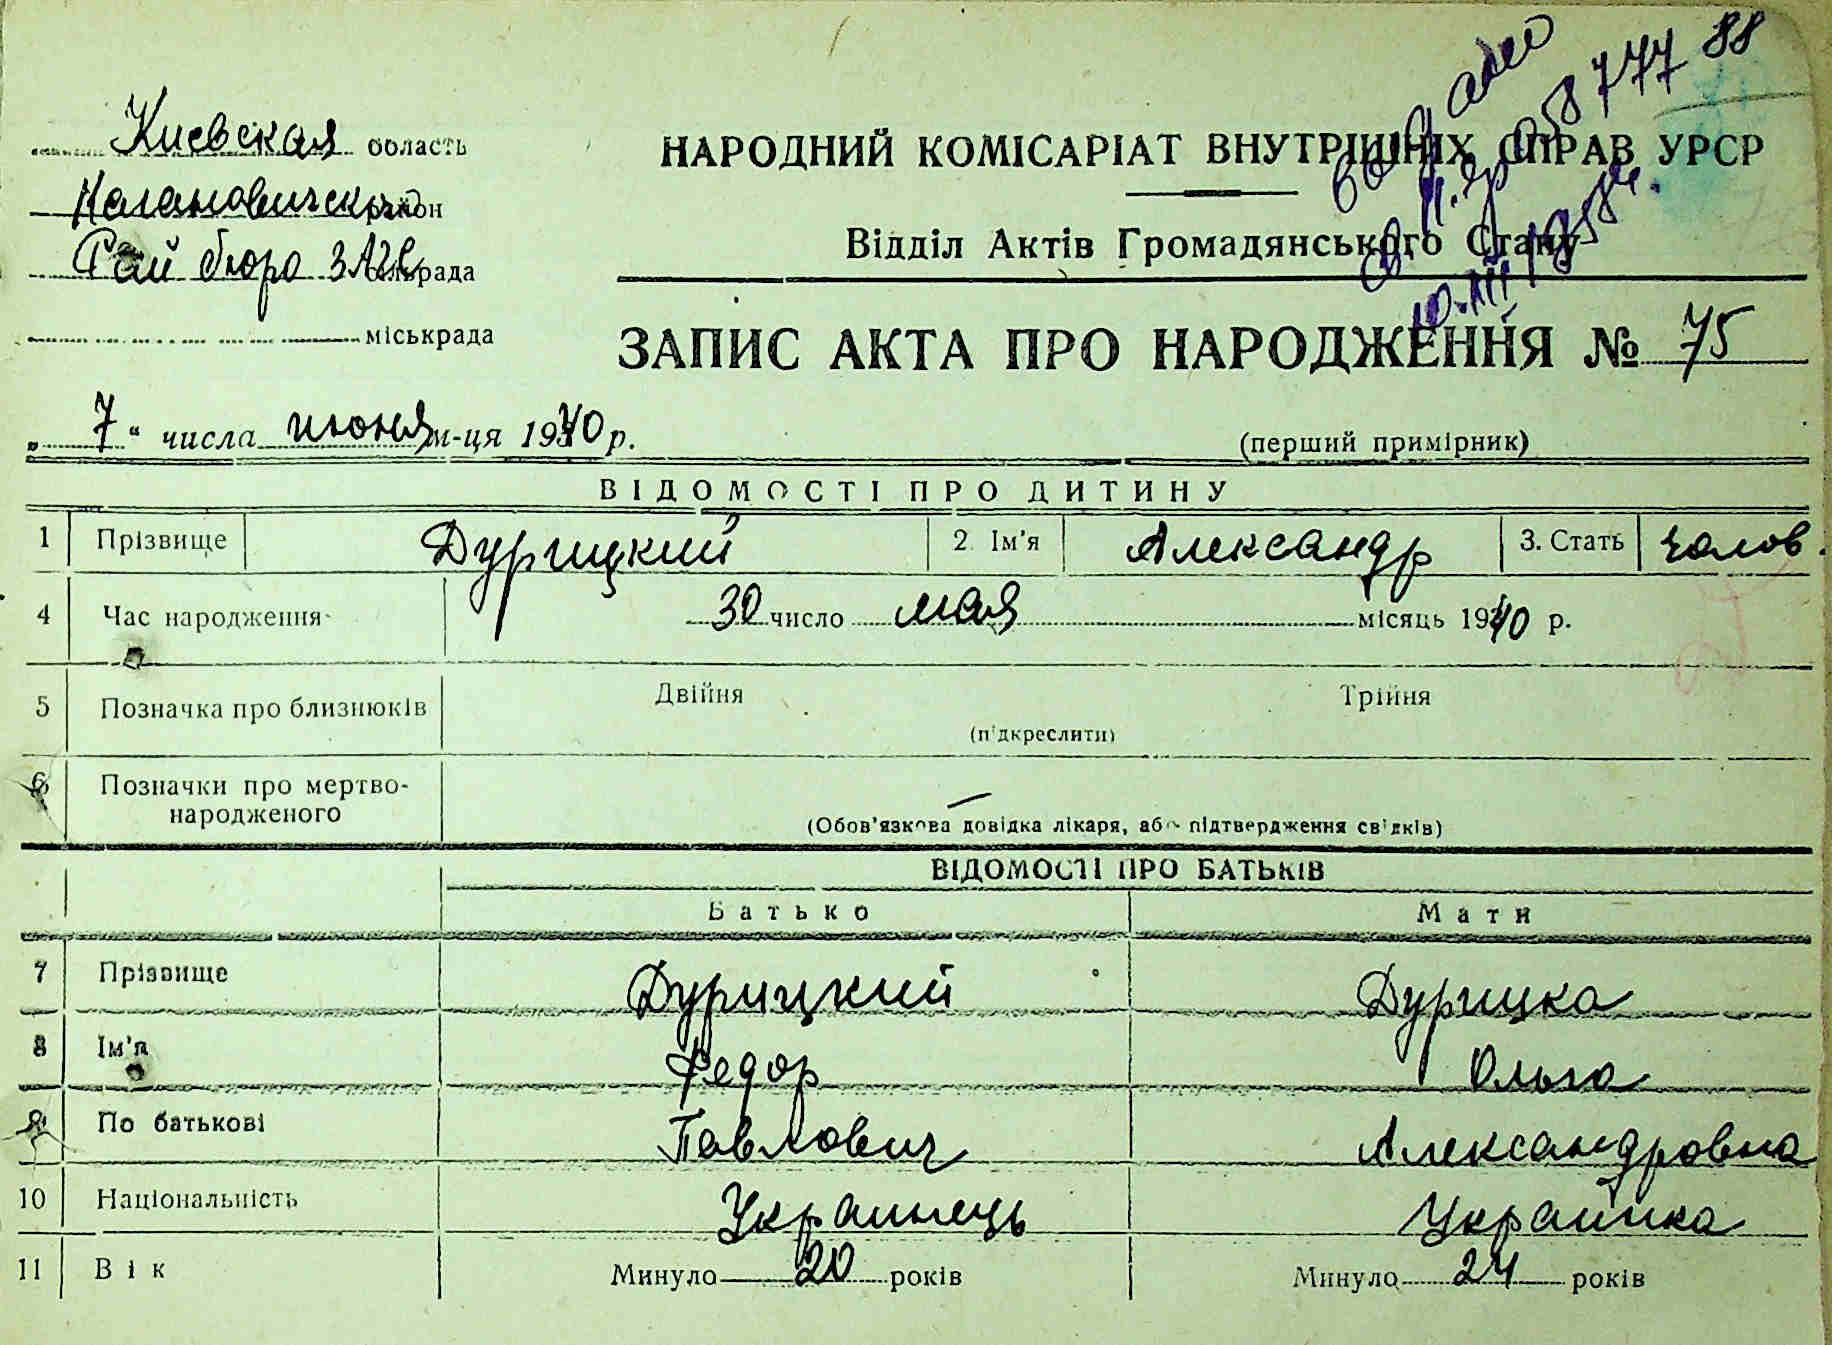 Киевская область
Кагановический район
Рай бюро ЗАГС сільрада
міськрада
88
НАРОДНИЙ КОМІСАРІАТ ВНУТРІШНІХ СПРАВ УРСР
Відділ Актів Громадянського Стану
ЗАПИС АКТА ПРО НАРОДЖЕННЯ № 75
„ 7 “ числа июня м-ця 1940 р.
(перший примірник)
ВІДОМОСТІ ПРО ДИТИНУ
1 Прізвище Дурицкий 2. Ім’я Александр 3. Стать чолов.
4 Час народження 30 число мая місяць 1940 р.
5 Позначка про близнюків Двійня Трійня
(підкреслити)
6 Позначки про мертво-
народженого
(Обов’язкова довідка лікаря, або підтвердження свідків)
ВІДОМОСТІ ПРО БАТЬКІВ
Батько Мати
7 Прізвище Дурицкий Дурицка
8 Ім’я Федор Ольга
9 По батькові Павлович Александровна
10 Національність Украинець Украинка
11 Вік Минуло 20 років Минуло 24 років